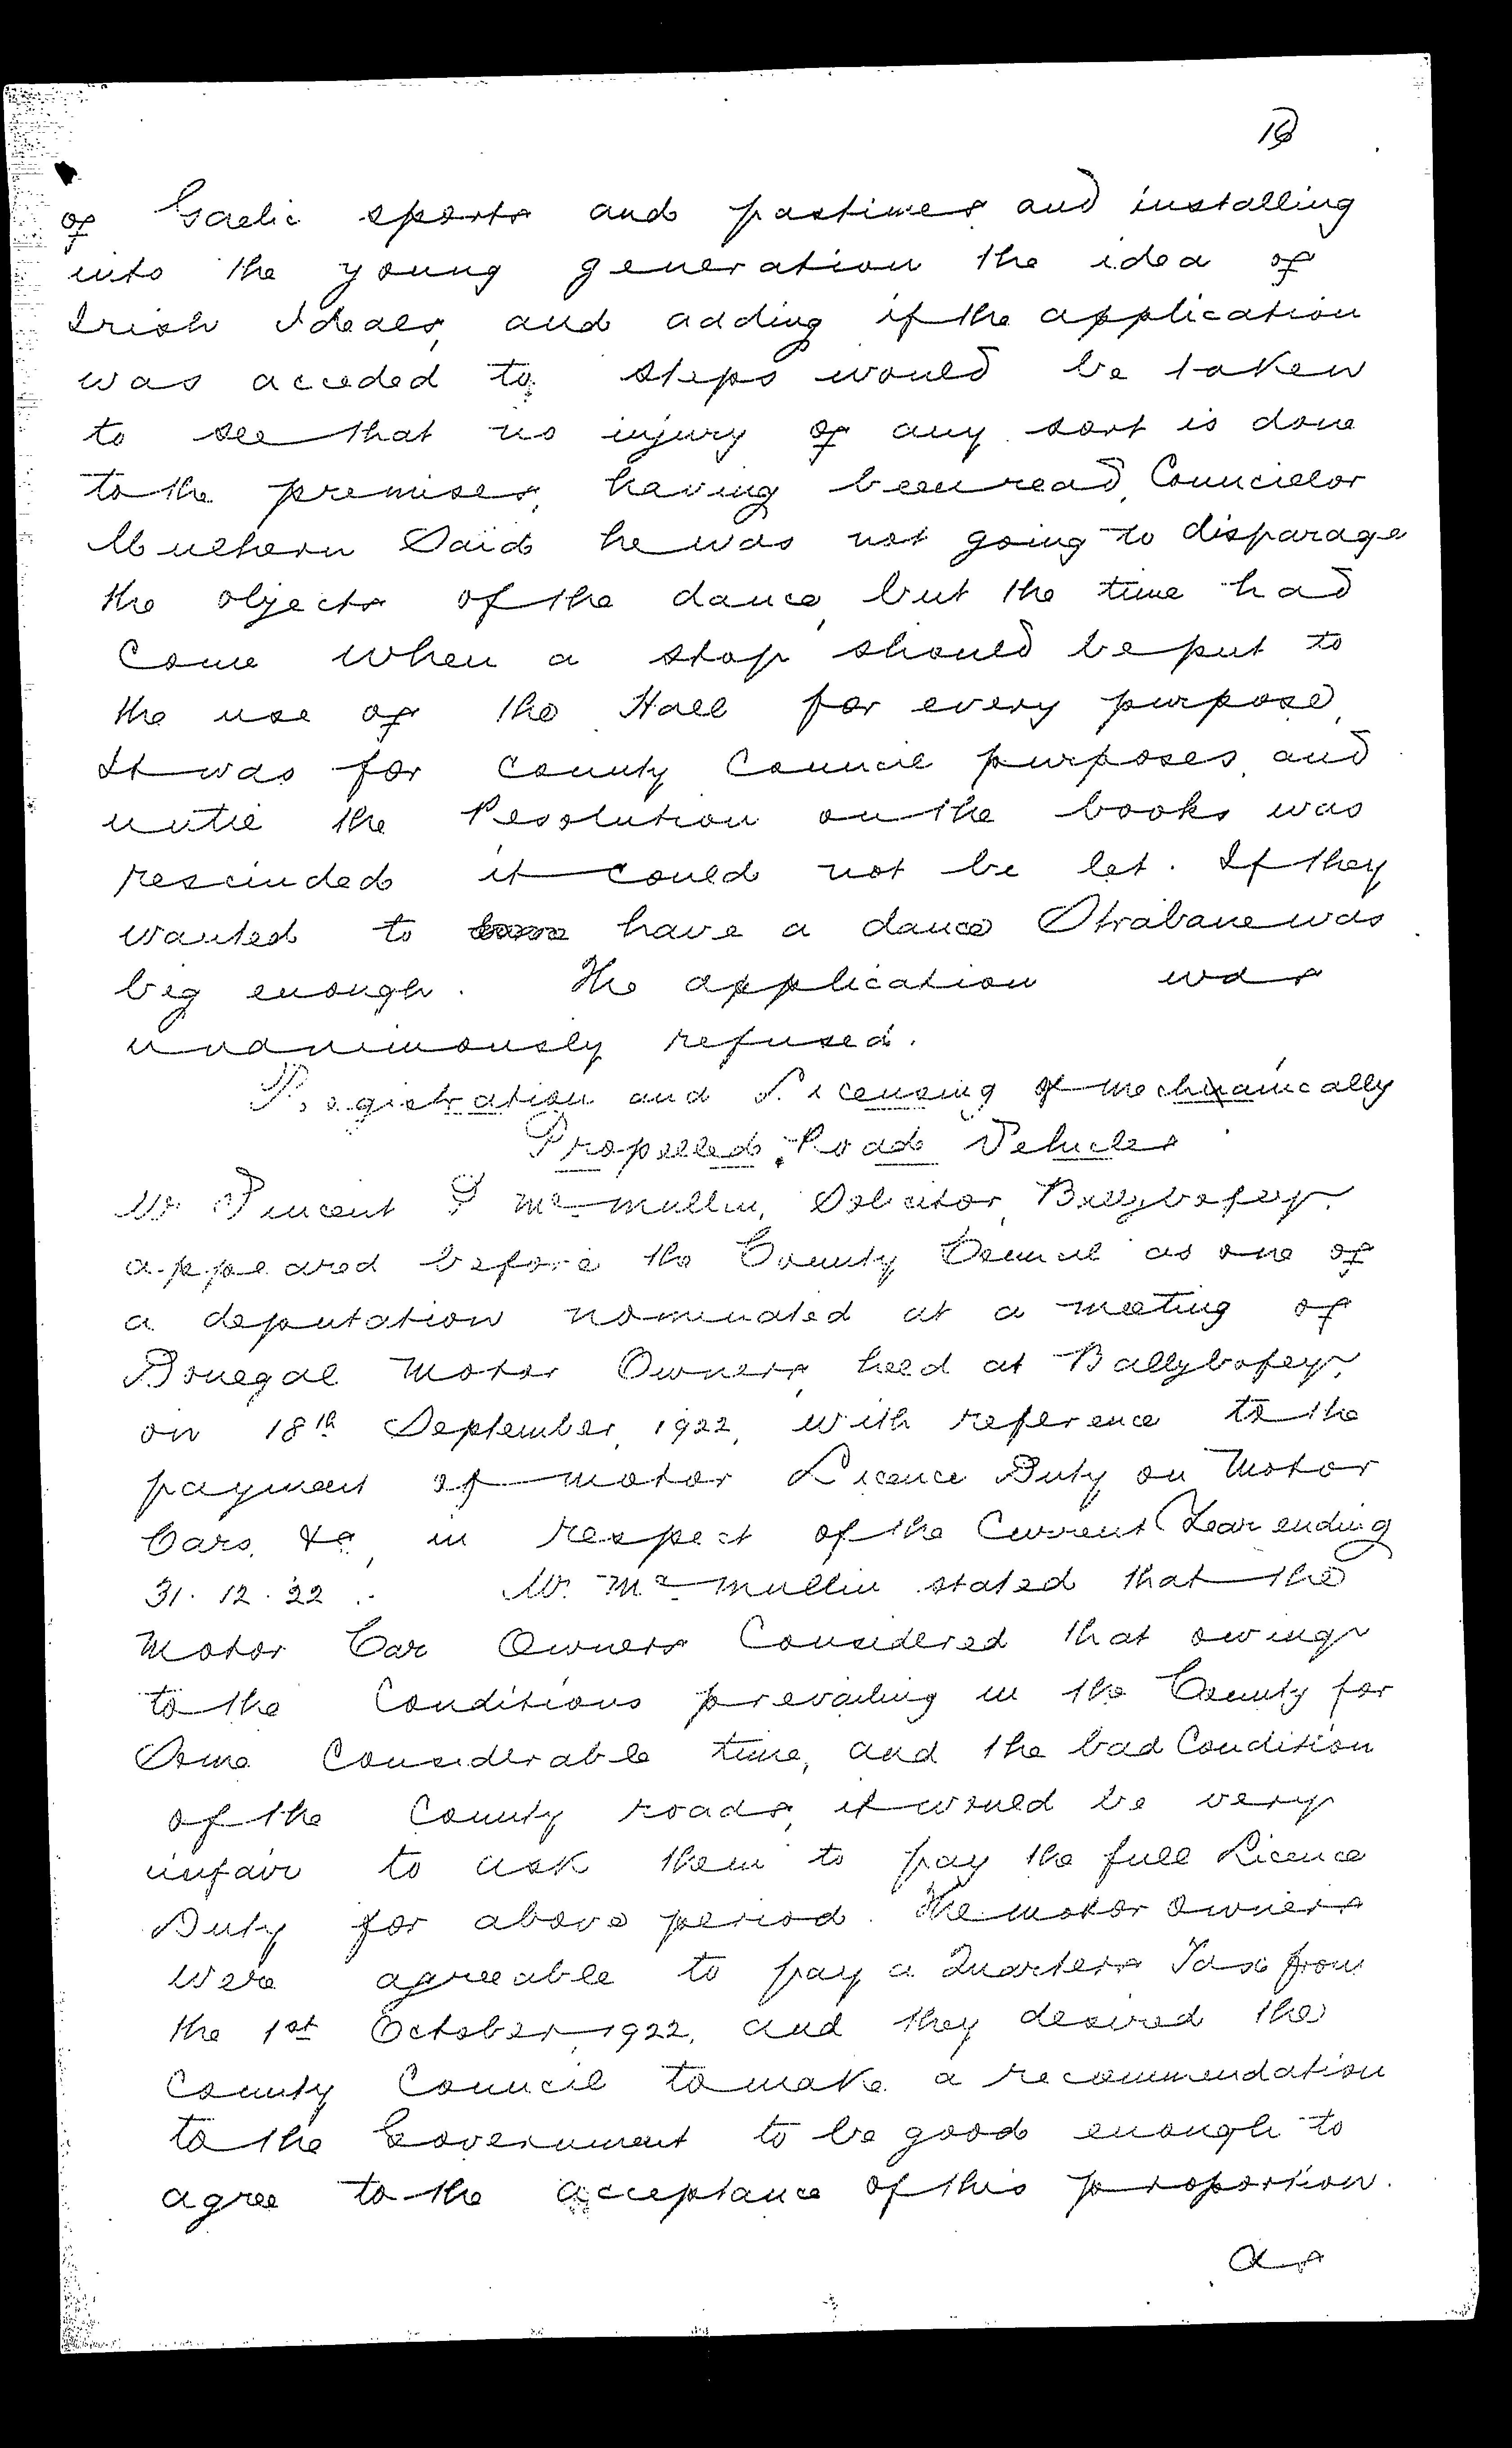 of Gaelic sports and pastimes and installing
into the young generation the idea of
Irish Ideals, and adding if the application
was acceded to steps would be taken
to see that no injury of any sort is done
to the premises, having been read, Councillor
Mulhern Said he was not going to disparage
the objects of the dance, but the time had
Come when a stop should be put to
the use of the Hall for every purpose.
It was for County Council purposes, and
until the Resolution on the books was
rescinded it could not be let. If they
wanted to have a dance Strabane was
big enough. The application was
unanimously refused.
Registration and Licensing of mechanically
Propelled Road Vehicles
Mr Vincent P McMullin, Solicitor, Ballybofey,
appeared before the County Council as one of
a deputation nominated at a meeting of
Donegal Motor Owners, held at Ballybofey,
on 18th September, 1922, with reference to the
payment of motor Licence Duty on Motor
Cars, &c, in respect of the Current Year ending
31.12.22. Mr. McMullin stated that the
Motor Car Owners Considered that owing
to the Conditions prevailing in the County for
Some Considerable time, and the bad Condition
of the County roads, it would be very
unfair to ask them to pay the full Licence
Duty for above period. The motor owners
were agreeable to pay a Quarters Tax from
the 1st October, 1922, and they desired the
County Council to make a recommendation
to the Government to be good enough to
agree to the acceptance of this proportion.
As